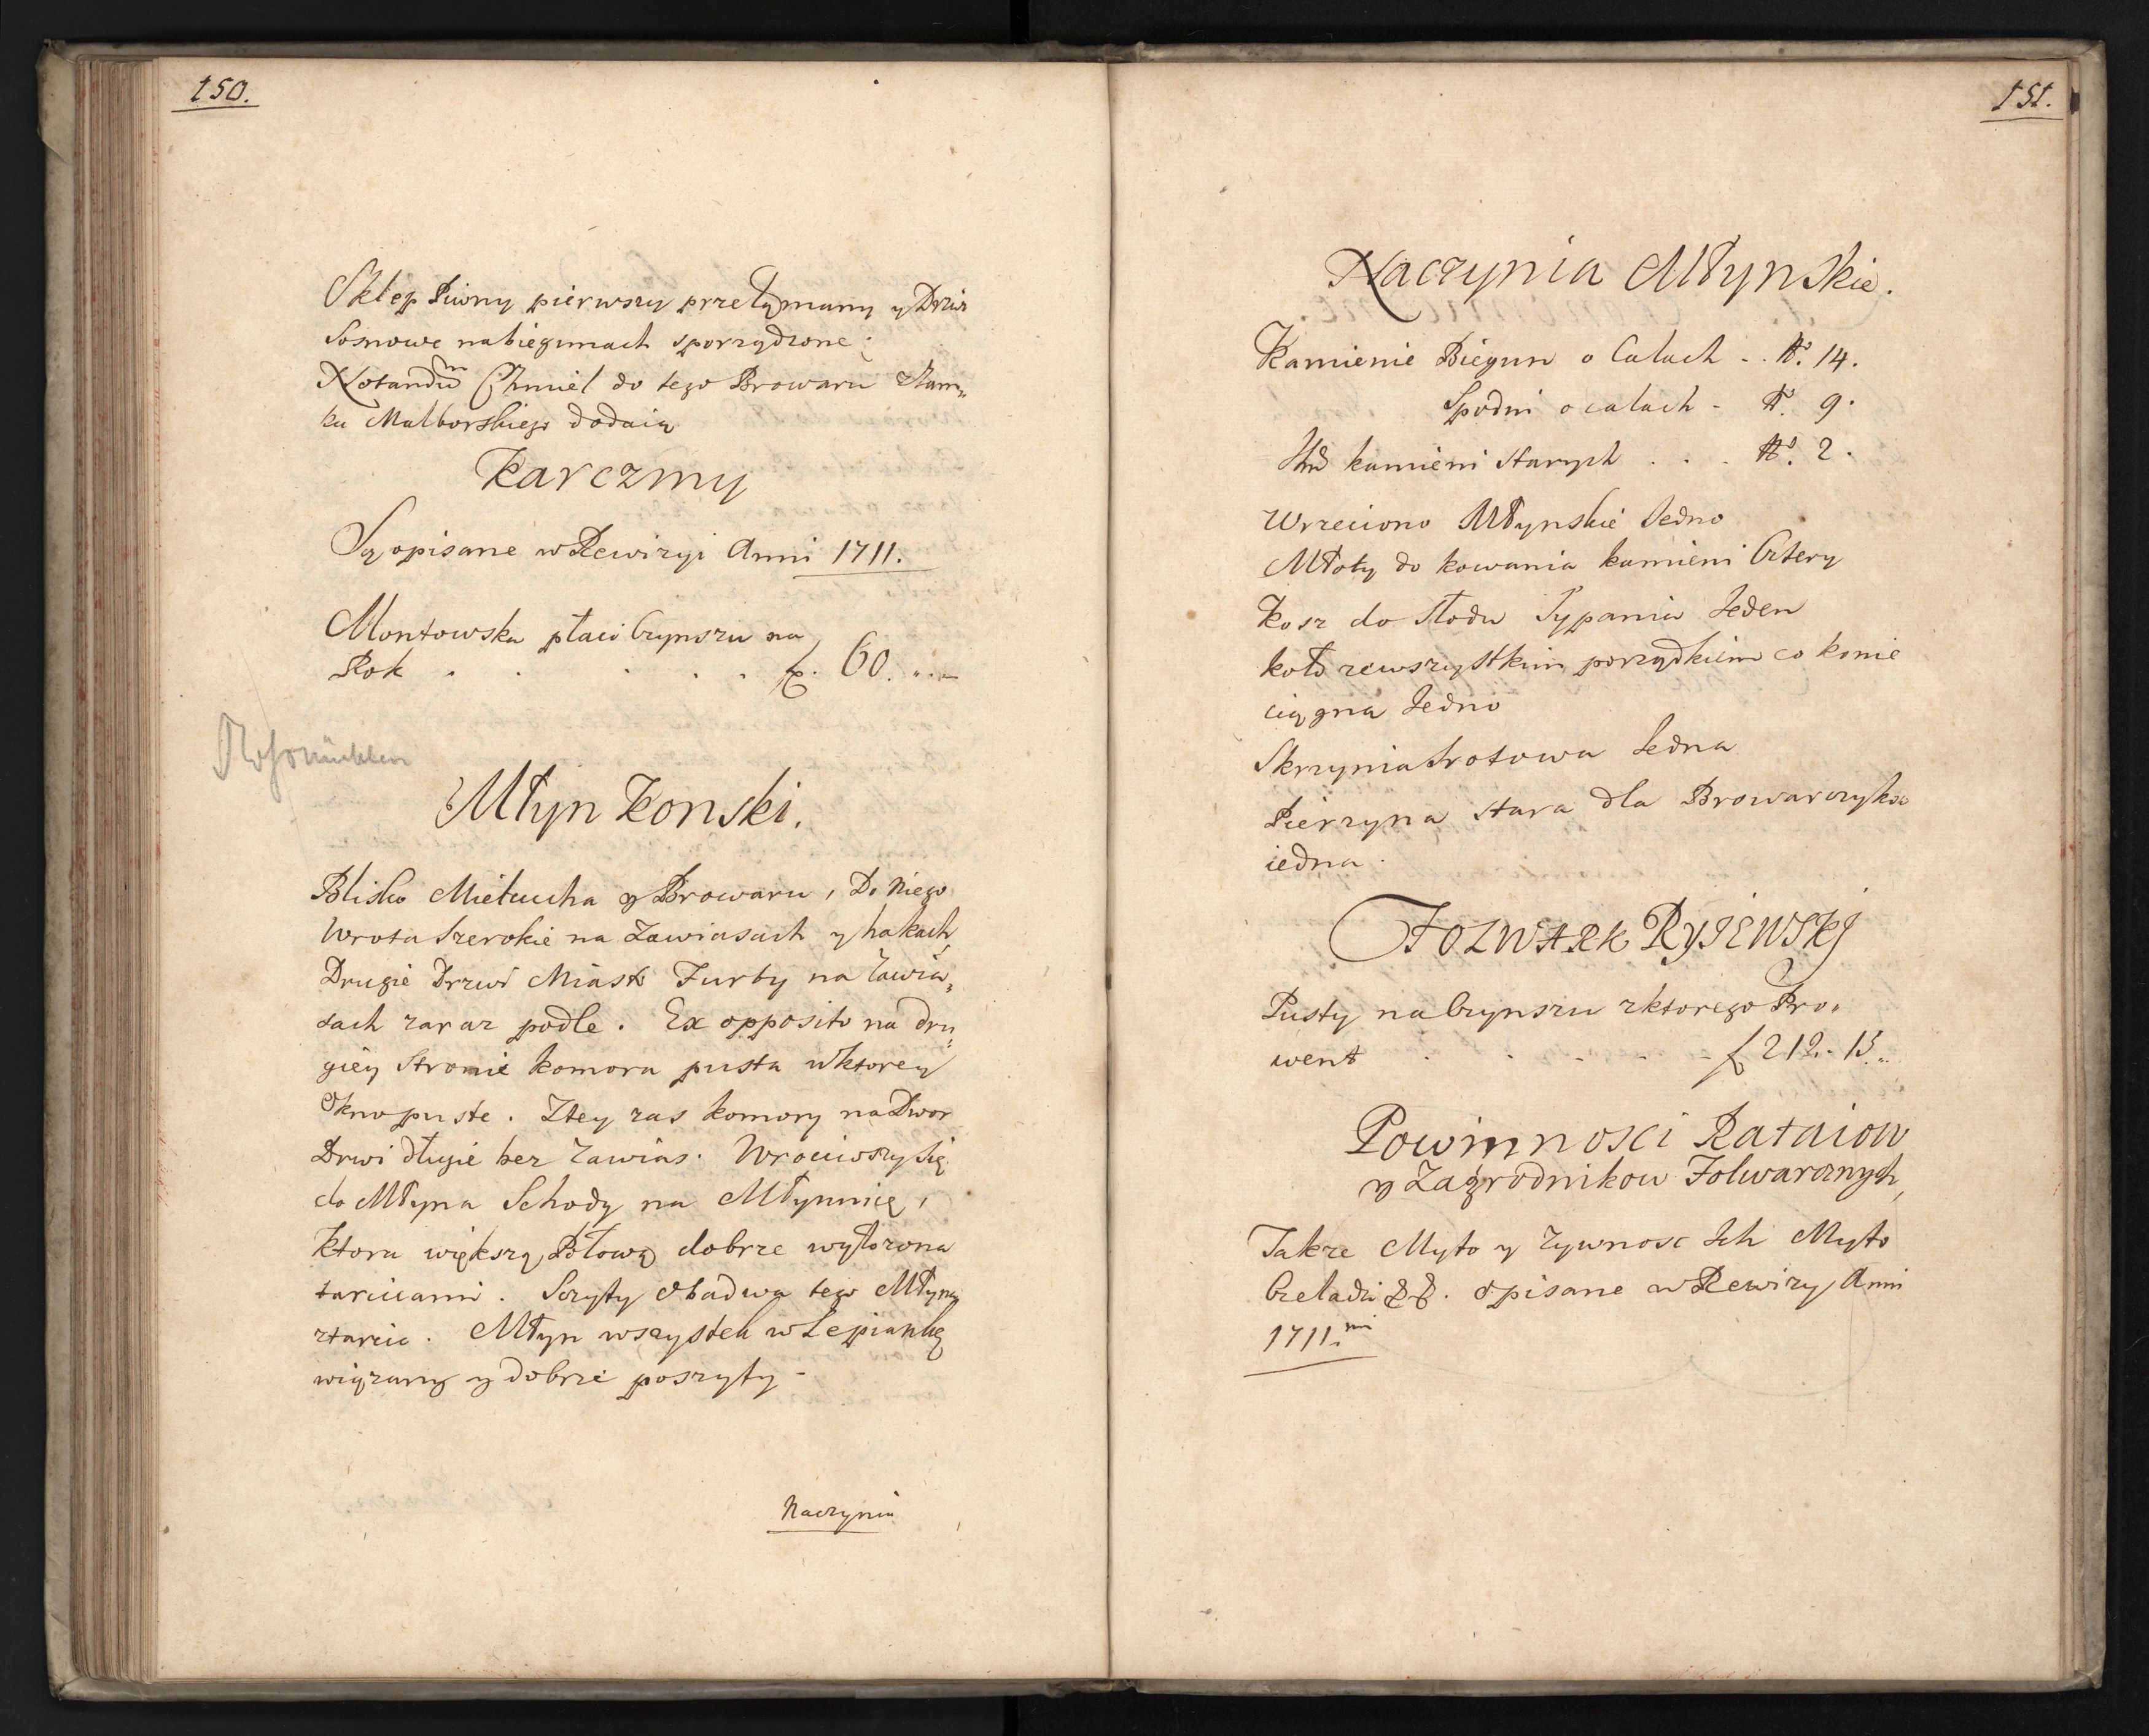 150.
Sklep Piwny pierwszy przełamany y Drzwi
Sosnowe na biegunach sporządzone;
Notandum Chmiel do tego Browaru Zam„
ku Malborskiego dodaią
Karczmy
Są opisane w Rewizyi Anni 1711.
Montowska płaci Czynszu na
Rok . . . . . f. 60. „ . —
Roßmühlen
Młyn Konski.
Blisko Mielcucha y Browaru, Do niego
Wrota Szerokie na Zawiasach y hakach,
Drugie Drzwi Miasto Furty na Zawia„
sach zaraz podle. Ex opposito na dru„
giey Stronie komora pusta w ktorey
Okno puste. Z tey zas komory na Dwor
Drwi długie bez Zawias. Wrociwszy się
do Młyna Schody na Młynnicę,
Ktora większą Połową dobrze wyłozona
tarcicami. Sczyty obadwa tego Młyna
z tarcic. Młyn wszystek w Lepiankę
wiązany y dobrze poszyty -
Naczynia
151.
Naczynia Młynskie.
Kamienie Biegun o Calach - . No. 14.
Spodni o calach - No. 9.
kamieni starych . . . No. 2.
Wrzeciono Młynskie Jedno
Młoty do kowania kamieni Cztery
Kosz do Słodu Sypania Jeden
koło ze wszystkim porządkiem co konie
ciągna Jedno
Skrzynia Srotowa Jedna
Pierzyna stara dla Browarczyka
iedna.
FOLWARK RYJEWSKJ
Pusty na Czynszu z ktorego Pro„
went . . - - - f 212 „ 15 „
Powinnosci Rataiow
y Zagrodnikow Folwarcznych,
Takze Myto y zywnosc Ich Myto
Czeladzi &&. opisane w Rewizy Anni
1711.mi